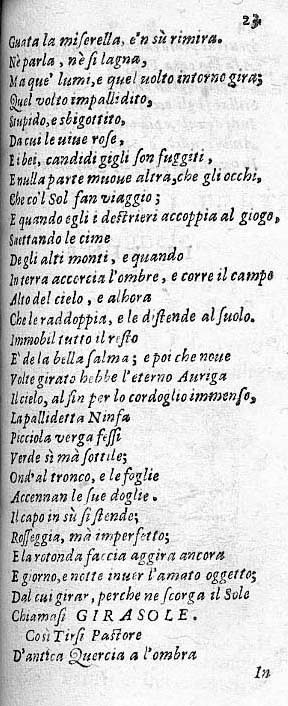 23
Guata la miserella, e'n sù rimira.
Nè parla, nè si lagna,
Ma que' lumi, e quel uolto intorno gira;
Quel volto impallidito,
Stupido, e sbigottito,
Da cui le uiue rose,
E i bei, candidi gigli son fuggiti,
E nulla parte muoue altra, che gli occhi,
Che co'l Sol fan viaggio;
E quando egli i destrieri accoppia al giogo,
Saettando le cime
De gli alti monti, e quando
In terra accorcia l'ombre, e corre il campo
Alto del cielo, e alhora
Che le raddoppia, e le distende al suolo.
Immobil tutto il resto
E' de la bella salma; e poi che noue
Volte girato hebbe l'eterno Auriga
Il cielo, al fin per lo cordoglio immenso,
La pallidetta Ninfa
Picciola verga fessi
Verde sì mà sottile;
Ond'al tronco, e le foglie
Accennan le sue doglie.
Il capo in sù si stende;
Rosseggia, mà imperfetto;
E la rotonda faccia aggira ancora
E giorno, e notte inuer l'amato oggetto;
Dal cui girar, perche ne scorga il Sole
Chiamasi GIRASOLE.
Così Tirsi Pastore
D'antica Quercia a l'ombra
In